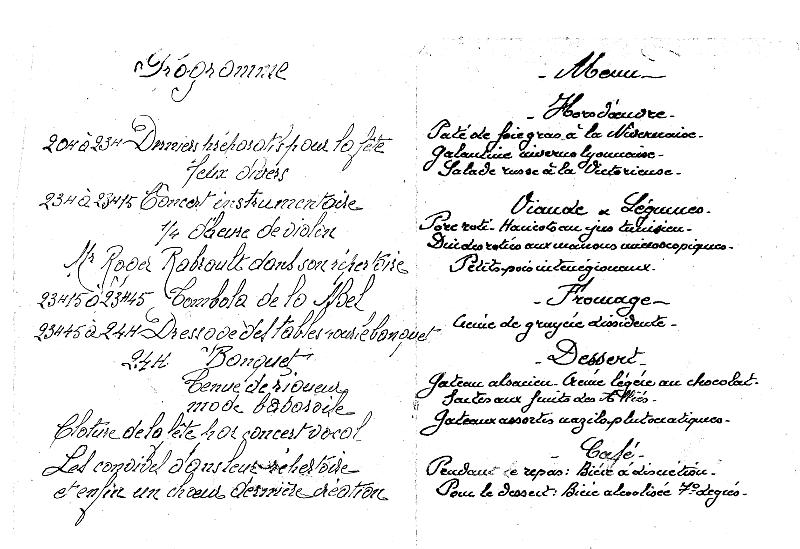 Programme
20H à 23H Derniers préparatifs pour la fête
Jeux divers
23H à 23H15 Concert instrumentaire
1/4 d'heure de violon
Mr Roger Rabroult dans son répertoire
23H15 à 23H45 Tombola de la Noel
23H45 à 24H Dressage des tables pour le banquet
24H Banquet
Tenue de rigueur
mode
Cloture de la fête par concert vocal
Les dans leur répertoire
et enfin un chœur dernière création
- Menu -
- Hors d'œuvre -
Paté de foie gras à la Nivernaise -
Galantine lyonnaise -
Salade russe à la Victorieuse -
Viande & Légumes -
Porc roti - Haricots au jus tunisien -
Dindes roties aux marrons microscopiques -
Petits pois
- Fromage -
Crème de gruyère dissidente -
- Dessert -
Gateau alsacien - Crème légère au chocolat -
Tartes aux fruits des
Gateaux assortis ploutocratiques -
- Café -
Pendant le repas : Bière à discrétion -
Pour le dessert : Bière alcoolisée 7° degrés -